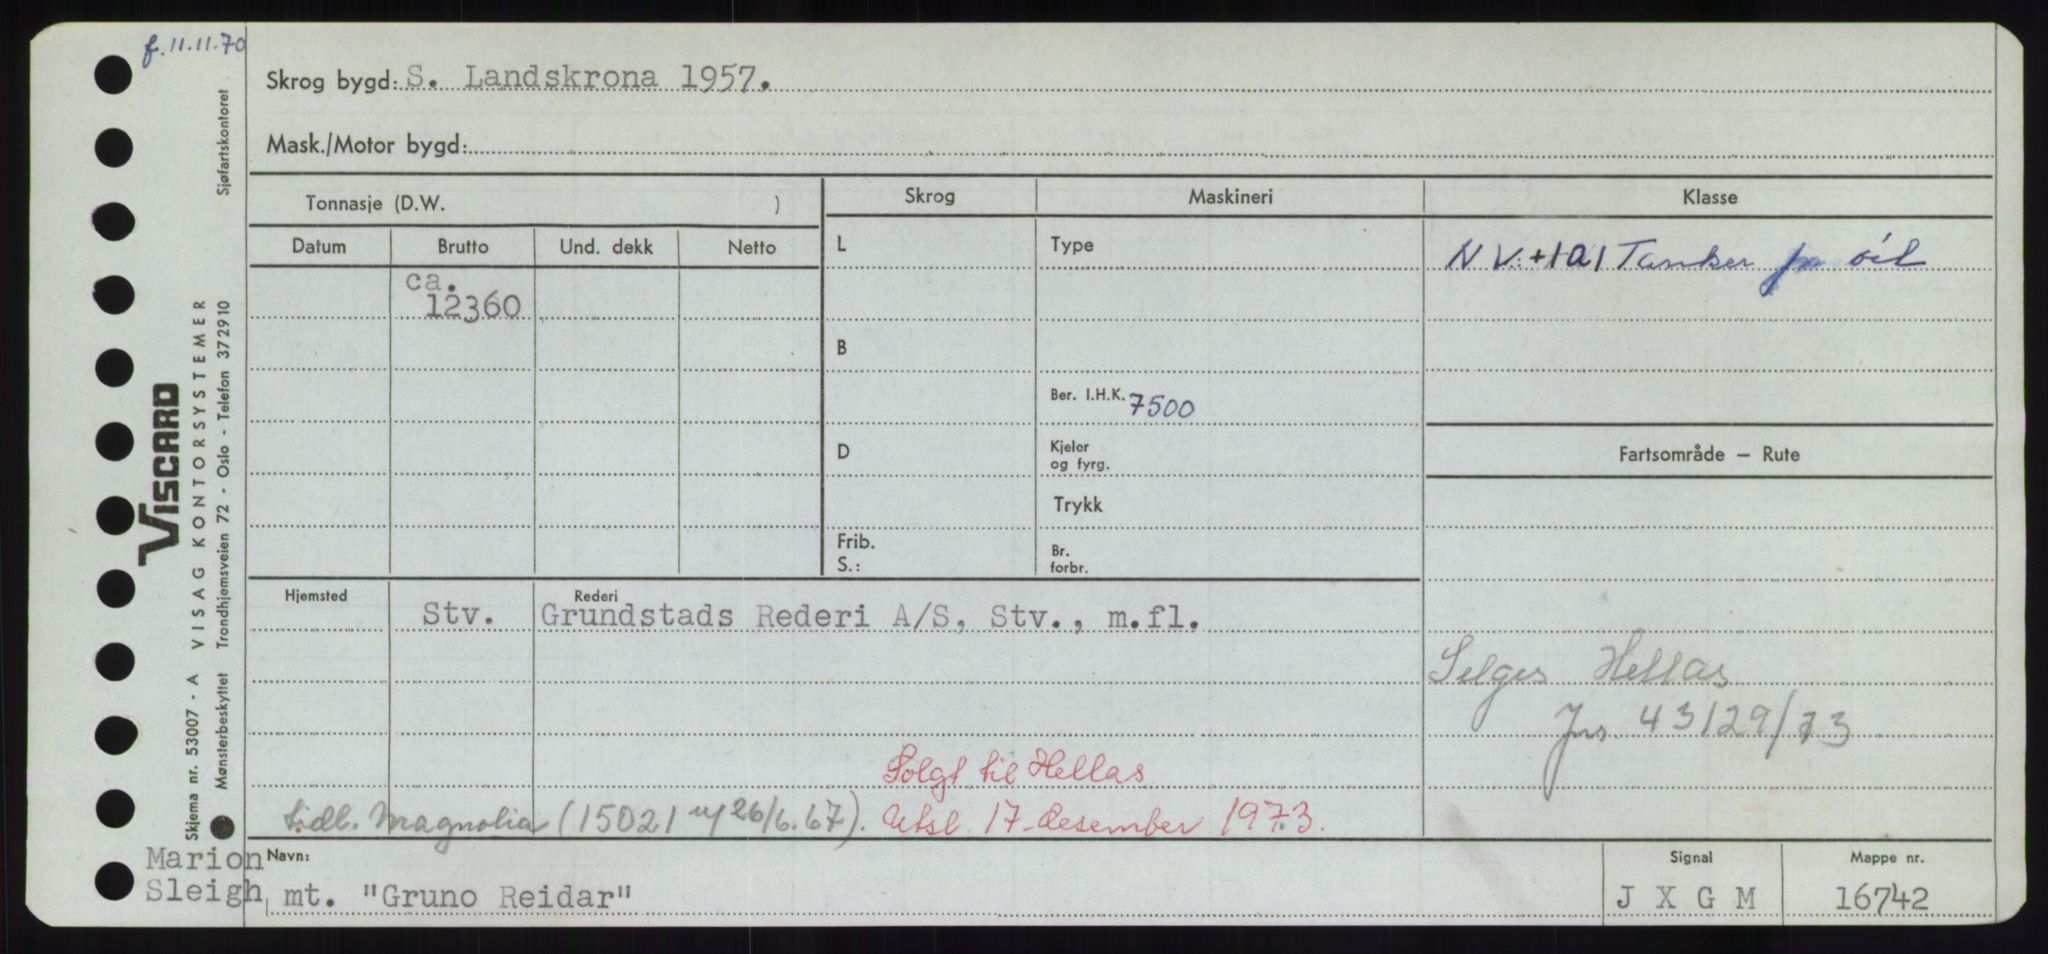 f. 11.11.70
Skrog bygd: S. Landskrona 1957.
Mask./Motor bygd:
Tonnasje (D.W. )
Skrog
Maskineri
Klasse
Datum
Brutto
Und. dekk
Netto
L
Type
N V. +1A1 Tanker for oil
ca.
12360
B
Ber. I.H.K. 7500
D
Kjeler
og fyrg.
Fartsområde — Rute
Trykk
Frib.
S.:
Br.
forbr.
Hjemsted
Rederi
Stv.
Grundstads Rederi A/S, Stv., m.fl.
Selges Hellas
Jnr. 43129/73
Solgt til Hellas
tidl. Magnolia (15021 26/6.67).
Utsl. 17. desember 1973.
Marion
Sleigh
Navn:
mt. "Gruno Reidar"
Signal
J X G M
Mappe nr.
16742
VISCARD
Skjema nr. 53007 - A VISAG KONTORSYSTEMER
Mønsterbeskyttet Trondhjemsveien 72 - Oslo - Telefon 372910 Sjøfartskontoret